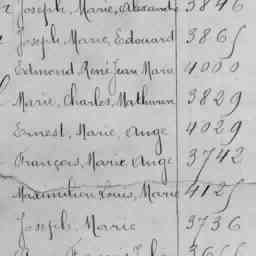 Joseph, Marie, Alexandre 3846
Joseph, Marie, Edouard 3865
Edmond, René Jean Marie 4000
Marie, Charles, Mathurin 3829
Ernest, Marie, Ange 4029
François, Marie, Ange 3742
Maximilien Louis, Marie 4125
Joseph, Marie 3736